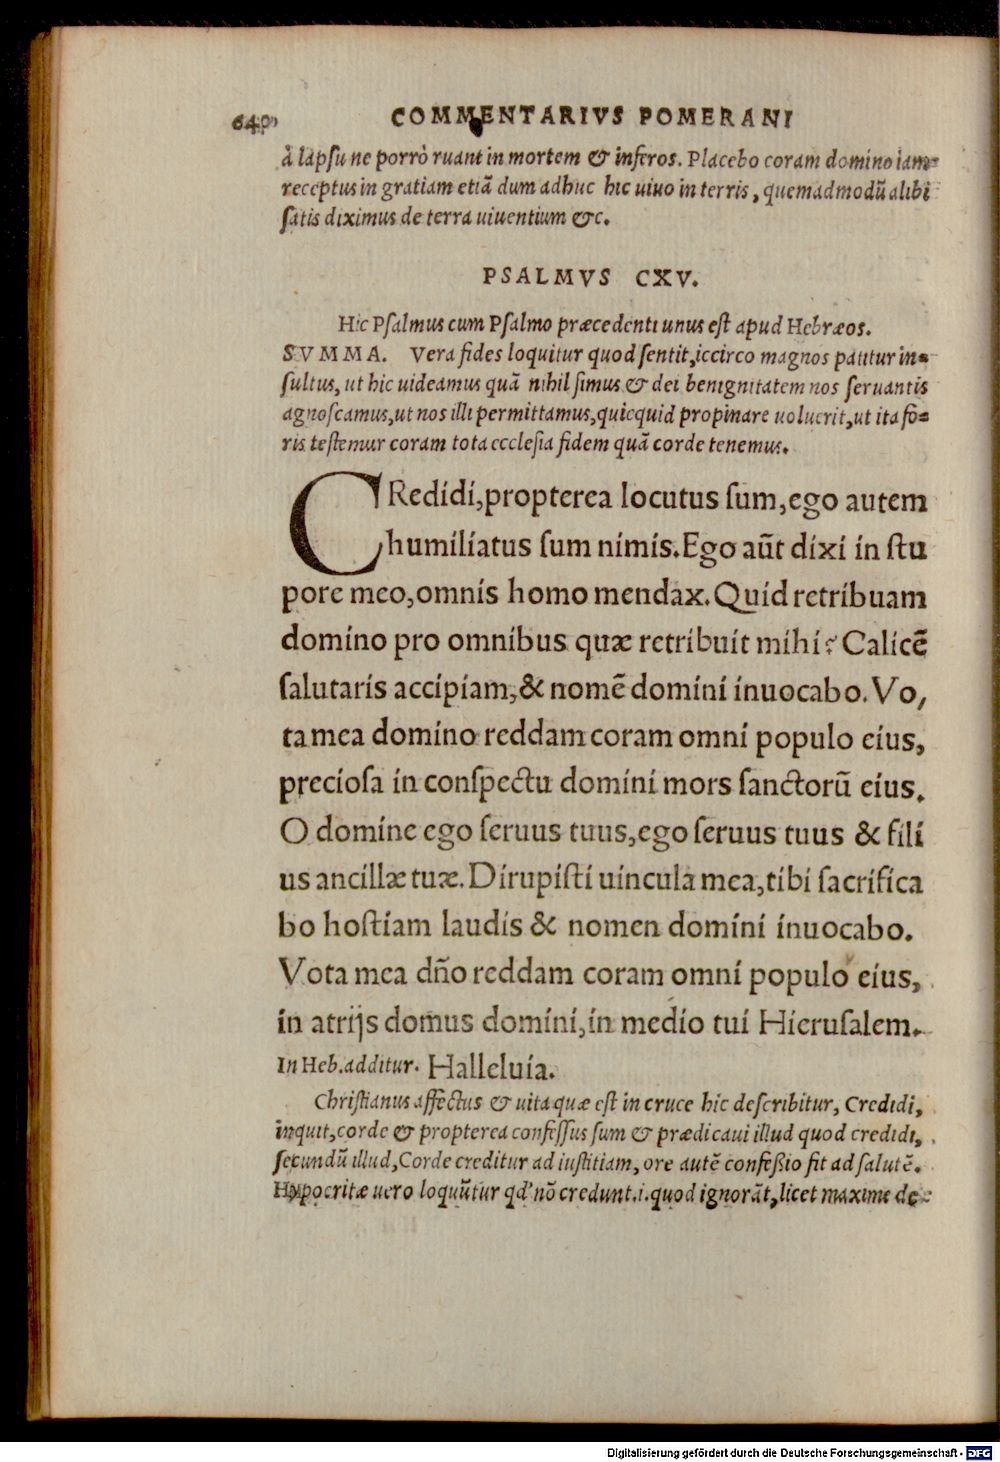 640 COMMENTARIVS POMERANI
à lapsu ne porrò ruant in mortem & inferos. Placebo coram domino iam-
receptus in gratiam etiã dum adhuc hic uiuo in terris, quemadmodũ alibi
satis diximus de terra uiuentium &c.
PSALMVS CXV.
Hic Psalmus cum Psalmo præcedenti unus est apud Hebræos.
SVMMA. Vera fides loquitur quod sentit, iccirco magnos patitur in-
sultus, ut hic uideamus quã nihil simus & dei benignitatem nos seruantis
agnoscamus, ut nos illi permittamus, quicquid propinare uoluerit, ut ita fo-
ris testemur coram tota ecclesia fidem quã corde tenemus.
CRedidi, propterea locutus sum, ego autem
humiliatus sum nimis. Ego aũt dixi in stu
pore meo, omnis homo mendax. Quid retribuam
domino pro omnibus quæ retribuit mihi? Calicẽ
salutaris accipiam, & nomẽ domini inuocabo. Vo,
ta mea domino reddam coram omni populo eius,
preciosa in conspectu domini mors sanctorũ eius.
O domine ego seruus tuus, ego seruus tuus & fili
us ancillæ tuæ. Dirupisti uincula mea, tibi sacrifica
bo hostiam laudis & nomen domini inuocabo.
Vota mea dño reddam coram omni populo eius,
in atrijs domus domini, in medio tui Hierusalem.
In Heb. additur. Halleluia.
Christianus affectus & uita quæ est in cruce hic describitur, Credidi,
inquit, corde & propterea confessus sum & prædicaui illud quod credidi,
secundũ illud, Corde creditur ad iustitiam, ore autẽ confeßio fit ad salutẽ.
Hypocritæ uero loquũtur qd' nõ credunt .i. quod ignorãt, licet maxime de-
Digitalisierung gefördert durch die Deutsche Forschungsgemeinschaft - DFG